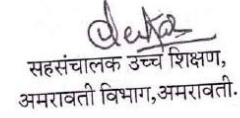 सहसंचालक उच्च शिक्षण,
अमरावती विभाग,अमरावती.